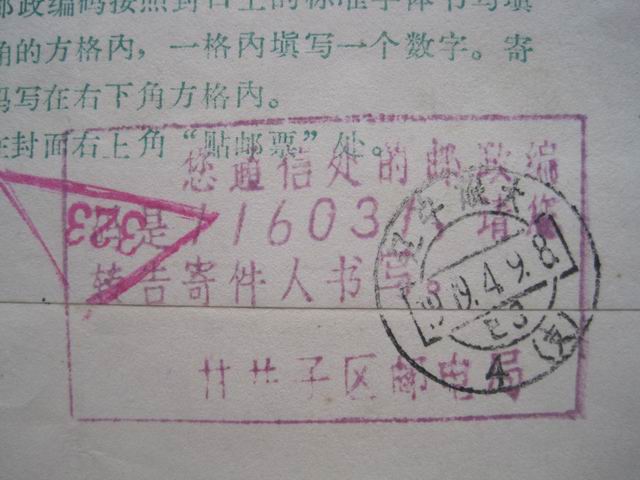 邮政编码按照封口上的标准字体书写填
角的方格内，一格内填写一个数字。寄
码写在右下角方格内。
在封面右上角“贴邮票”处。
您通信处的邮政编
码是116031请您
转告寄件人书写。
甘井子区邮电局
323
19.4.9.8
E3
4（支）